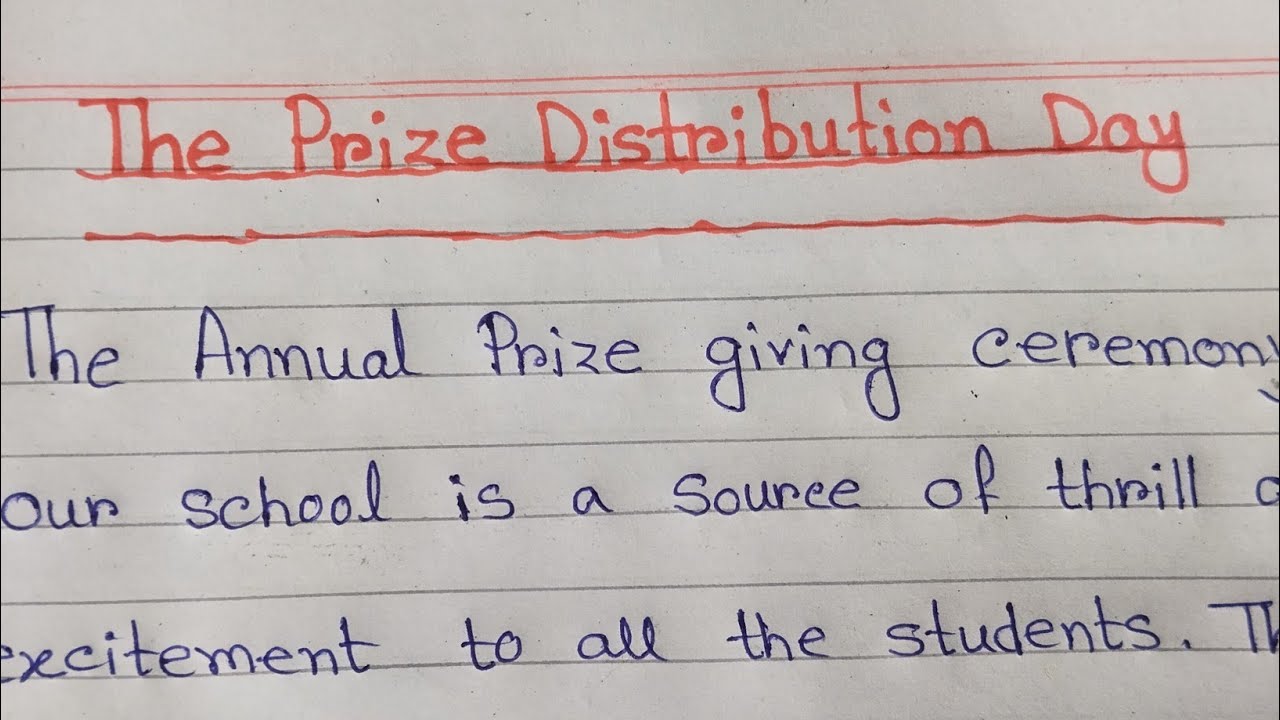 The Prize Distribution Day
The Annual Prize giving ceremony
our school is a source of thrill
excitement to all the students.